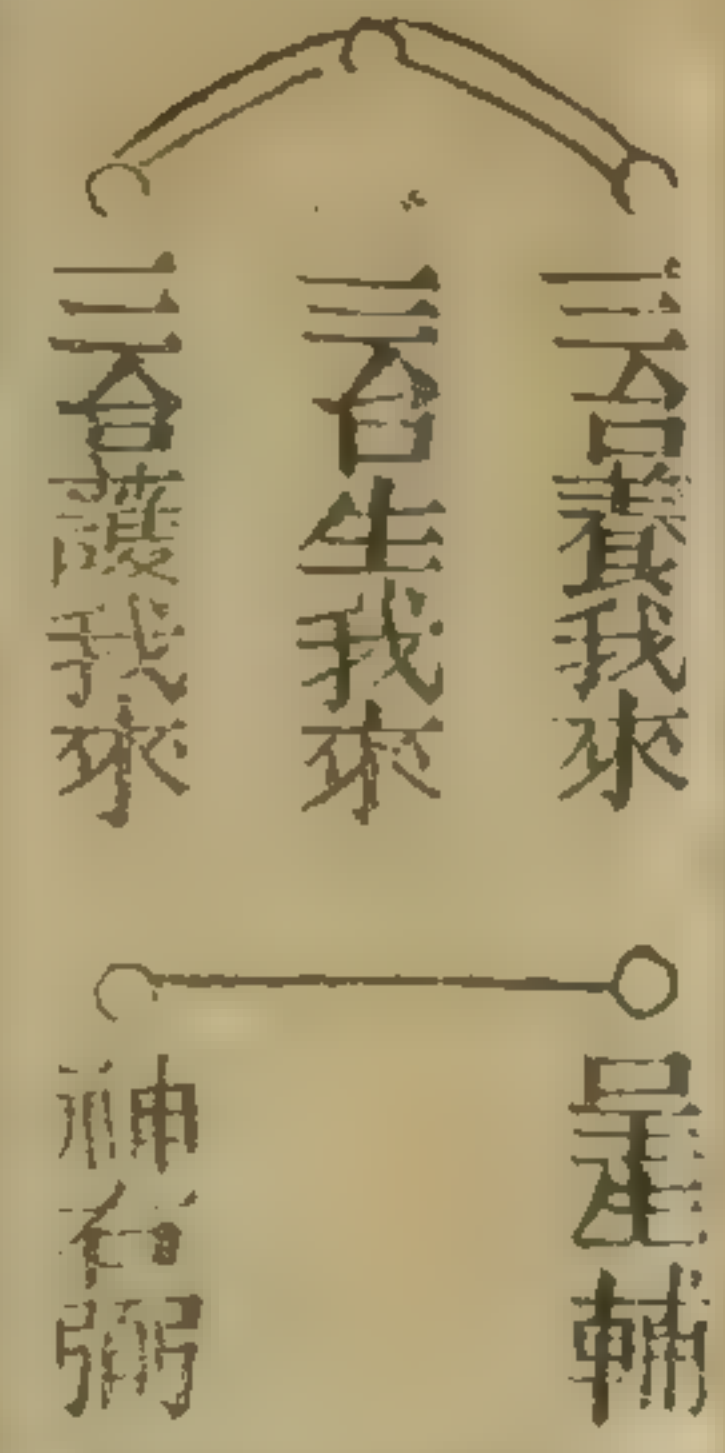 三台養我來
三台生我來
三台護我來
左輔
神右弼